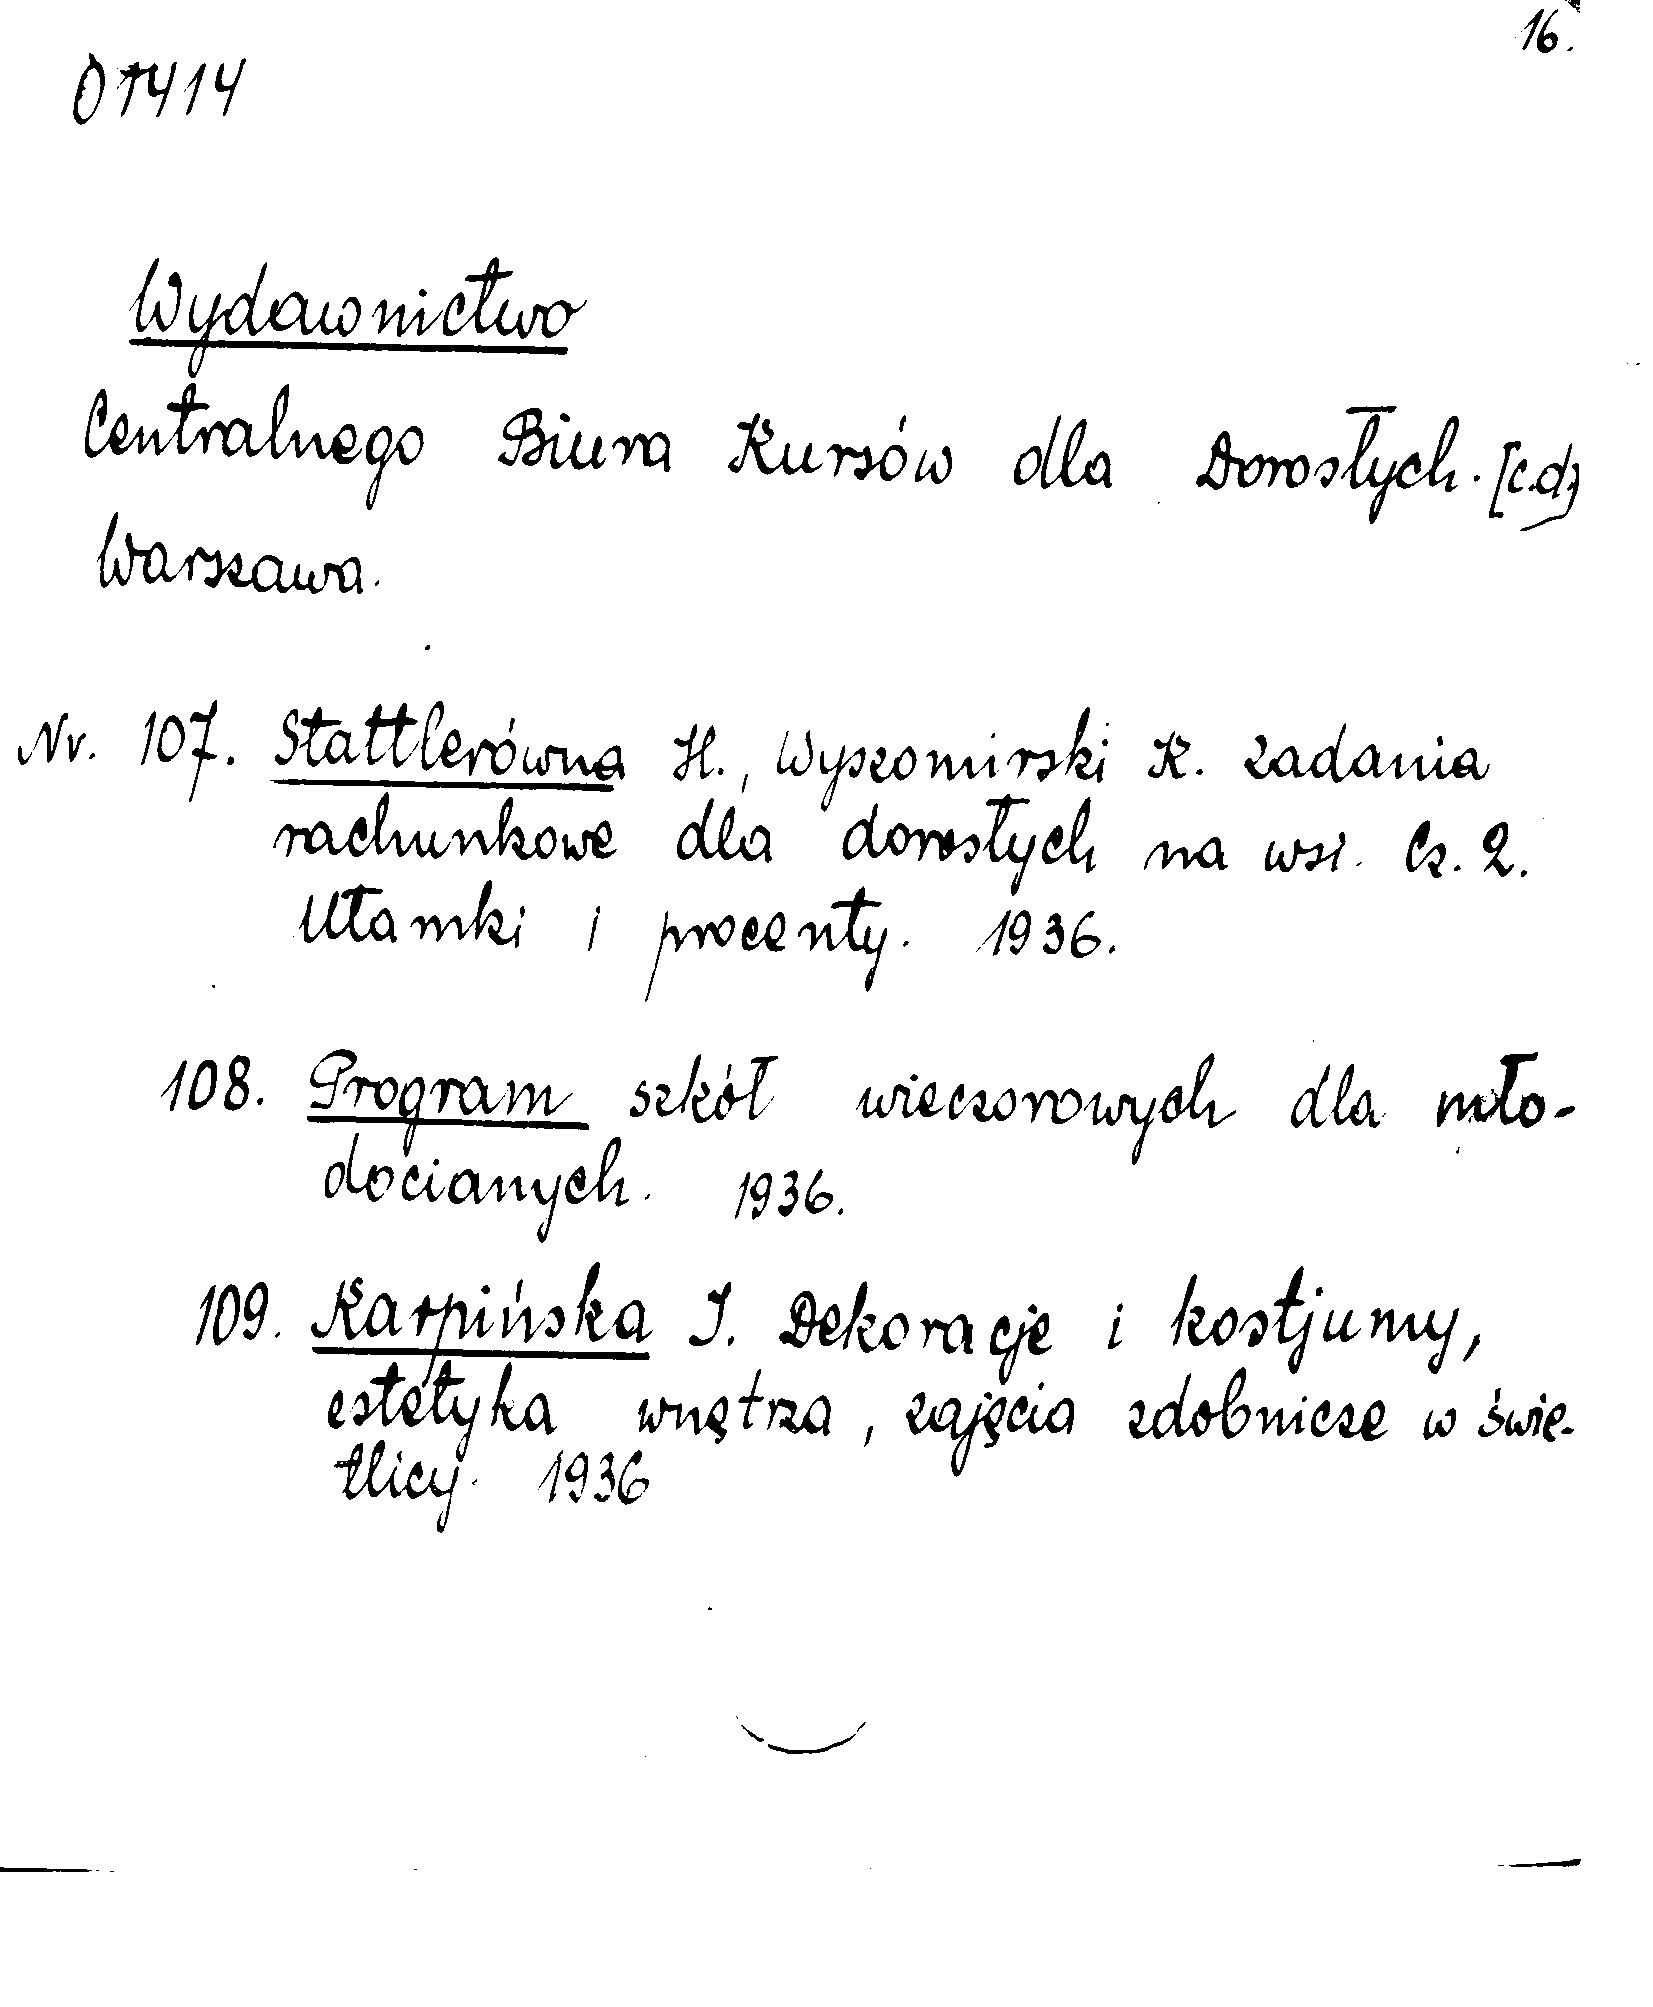 16.
01414
Wydawnictwo
Centralnego Biura Kursów dla Dorosłych. [c.d.]
Warszawa.
Nr. 107. Stattlerówna H., Wyszomirski K. Zadania
rachunkowe dla dorosłych na wsi. Cz. 2.
Ułamki i procenty. 1936.
108. Program szkół wieczorowych dla mło-
docianych. 1936.
109. Karpińska I. Dekoracje i kostjumy,
estetyka wnętrza, zajęcia zdobnicze w świe-
tlicy. 1936